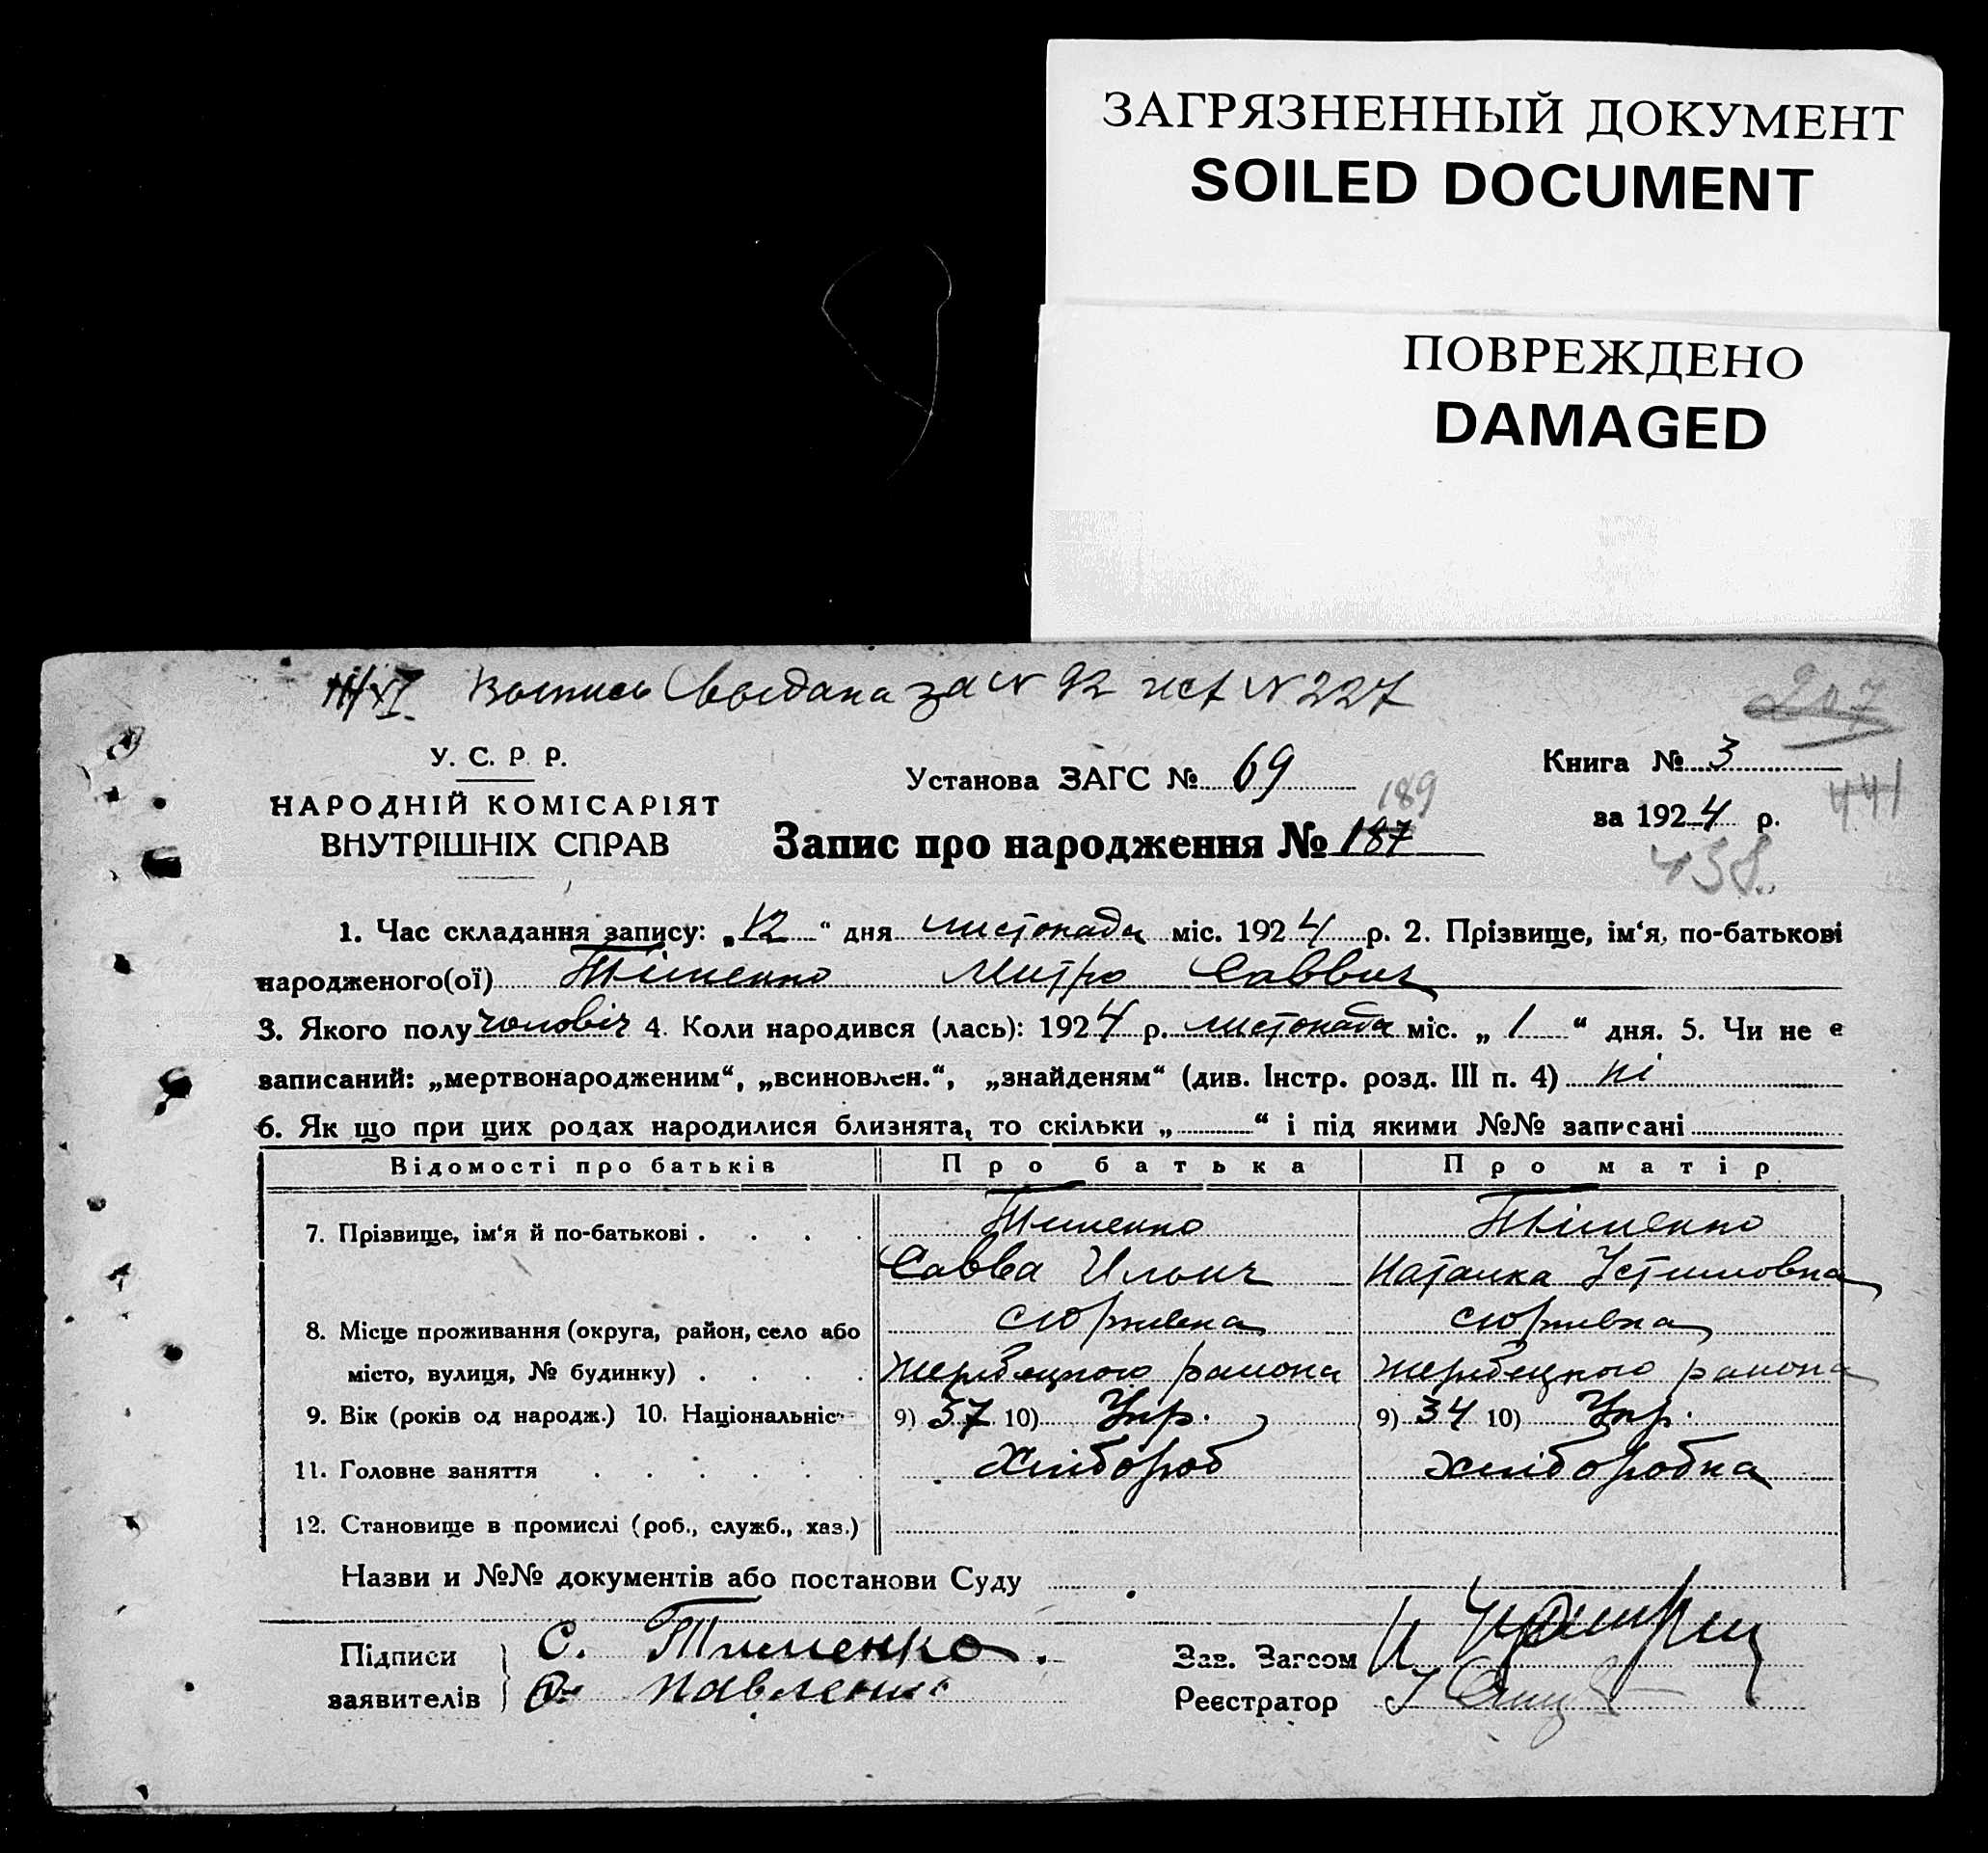 ЗАГРЯЗНЕННЫЙ ДОКУМЕНТ
SOILED DOCUMENT
ПОВРЕЖДЕНО
DAMAGED
выдана за N 92 N 227
207
У. С. Р Р.
НАРОДНІЙ КОМІСАРІЯТ
ВНУТРІШНІХ СПРАВ
Установа ЗАГС № 69
Книга № 3
189
441
за 1924 р.
Запис про народження № 187
438
1. Час складання запису: „12“ дня листопада міс. 1924 р. 2. Прізвище, ім‘я, по-батькові
народженого(ої) Тіменко Митро Саввич
3. Якого полу чоловіч 4. Коли народився (лась): 1924 р. листопада міс. „ 1 “ дня. 5. Чи не є
записаний: „мертвонародженим“, „всиновлен.“, „знайденям“ (див. Інстр. розд. III п. 4) ні
6. Як що при цих родах народилися близнята, то скільки „ “ і під якими №№ записані
Відомості про батьків Про батька Про матір
7. Прізвище, ім‘я й по-батькові Тименко Тіменко
Савва Ильич Наталка Устимовна
8. Місце проживання (округа, район, село або
місто, вулиця, № будинку) района района
9. Вік (років од народж.) 10. Національніс 9) 37 10) Укр. 9) 34 10) Укр.
11. Головне заняття Хлібороб хліборобка
12. Становище в промислі (роб., служб., хаз.)
Назви и №№ документів або постанови Суду
Підписи С. Тименко.
заявителів Павленко
Зав. Загсом
Реєстратор